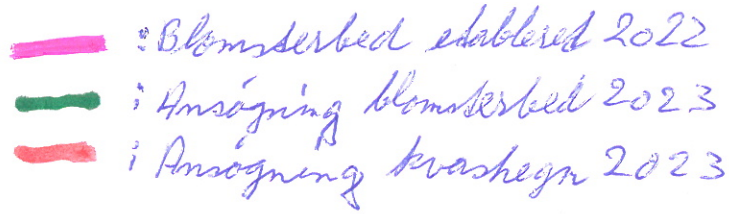 : Blomsterbed etableret 2022
: Ansøgning blomsterbed 2023
: Ansøgning kvashegn 2023